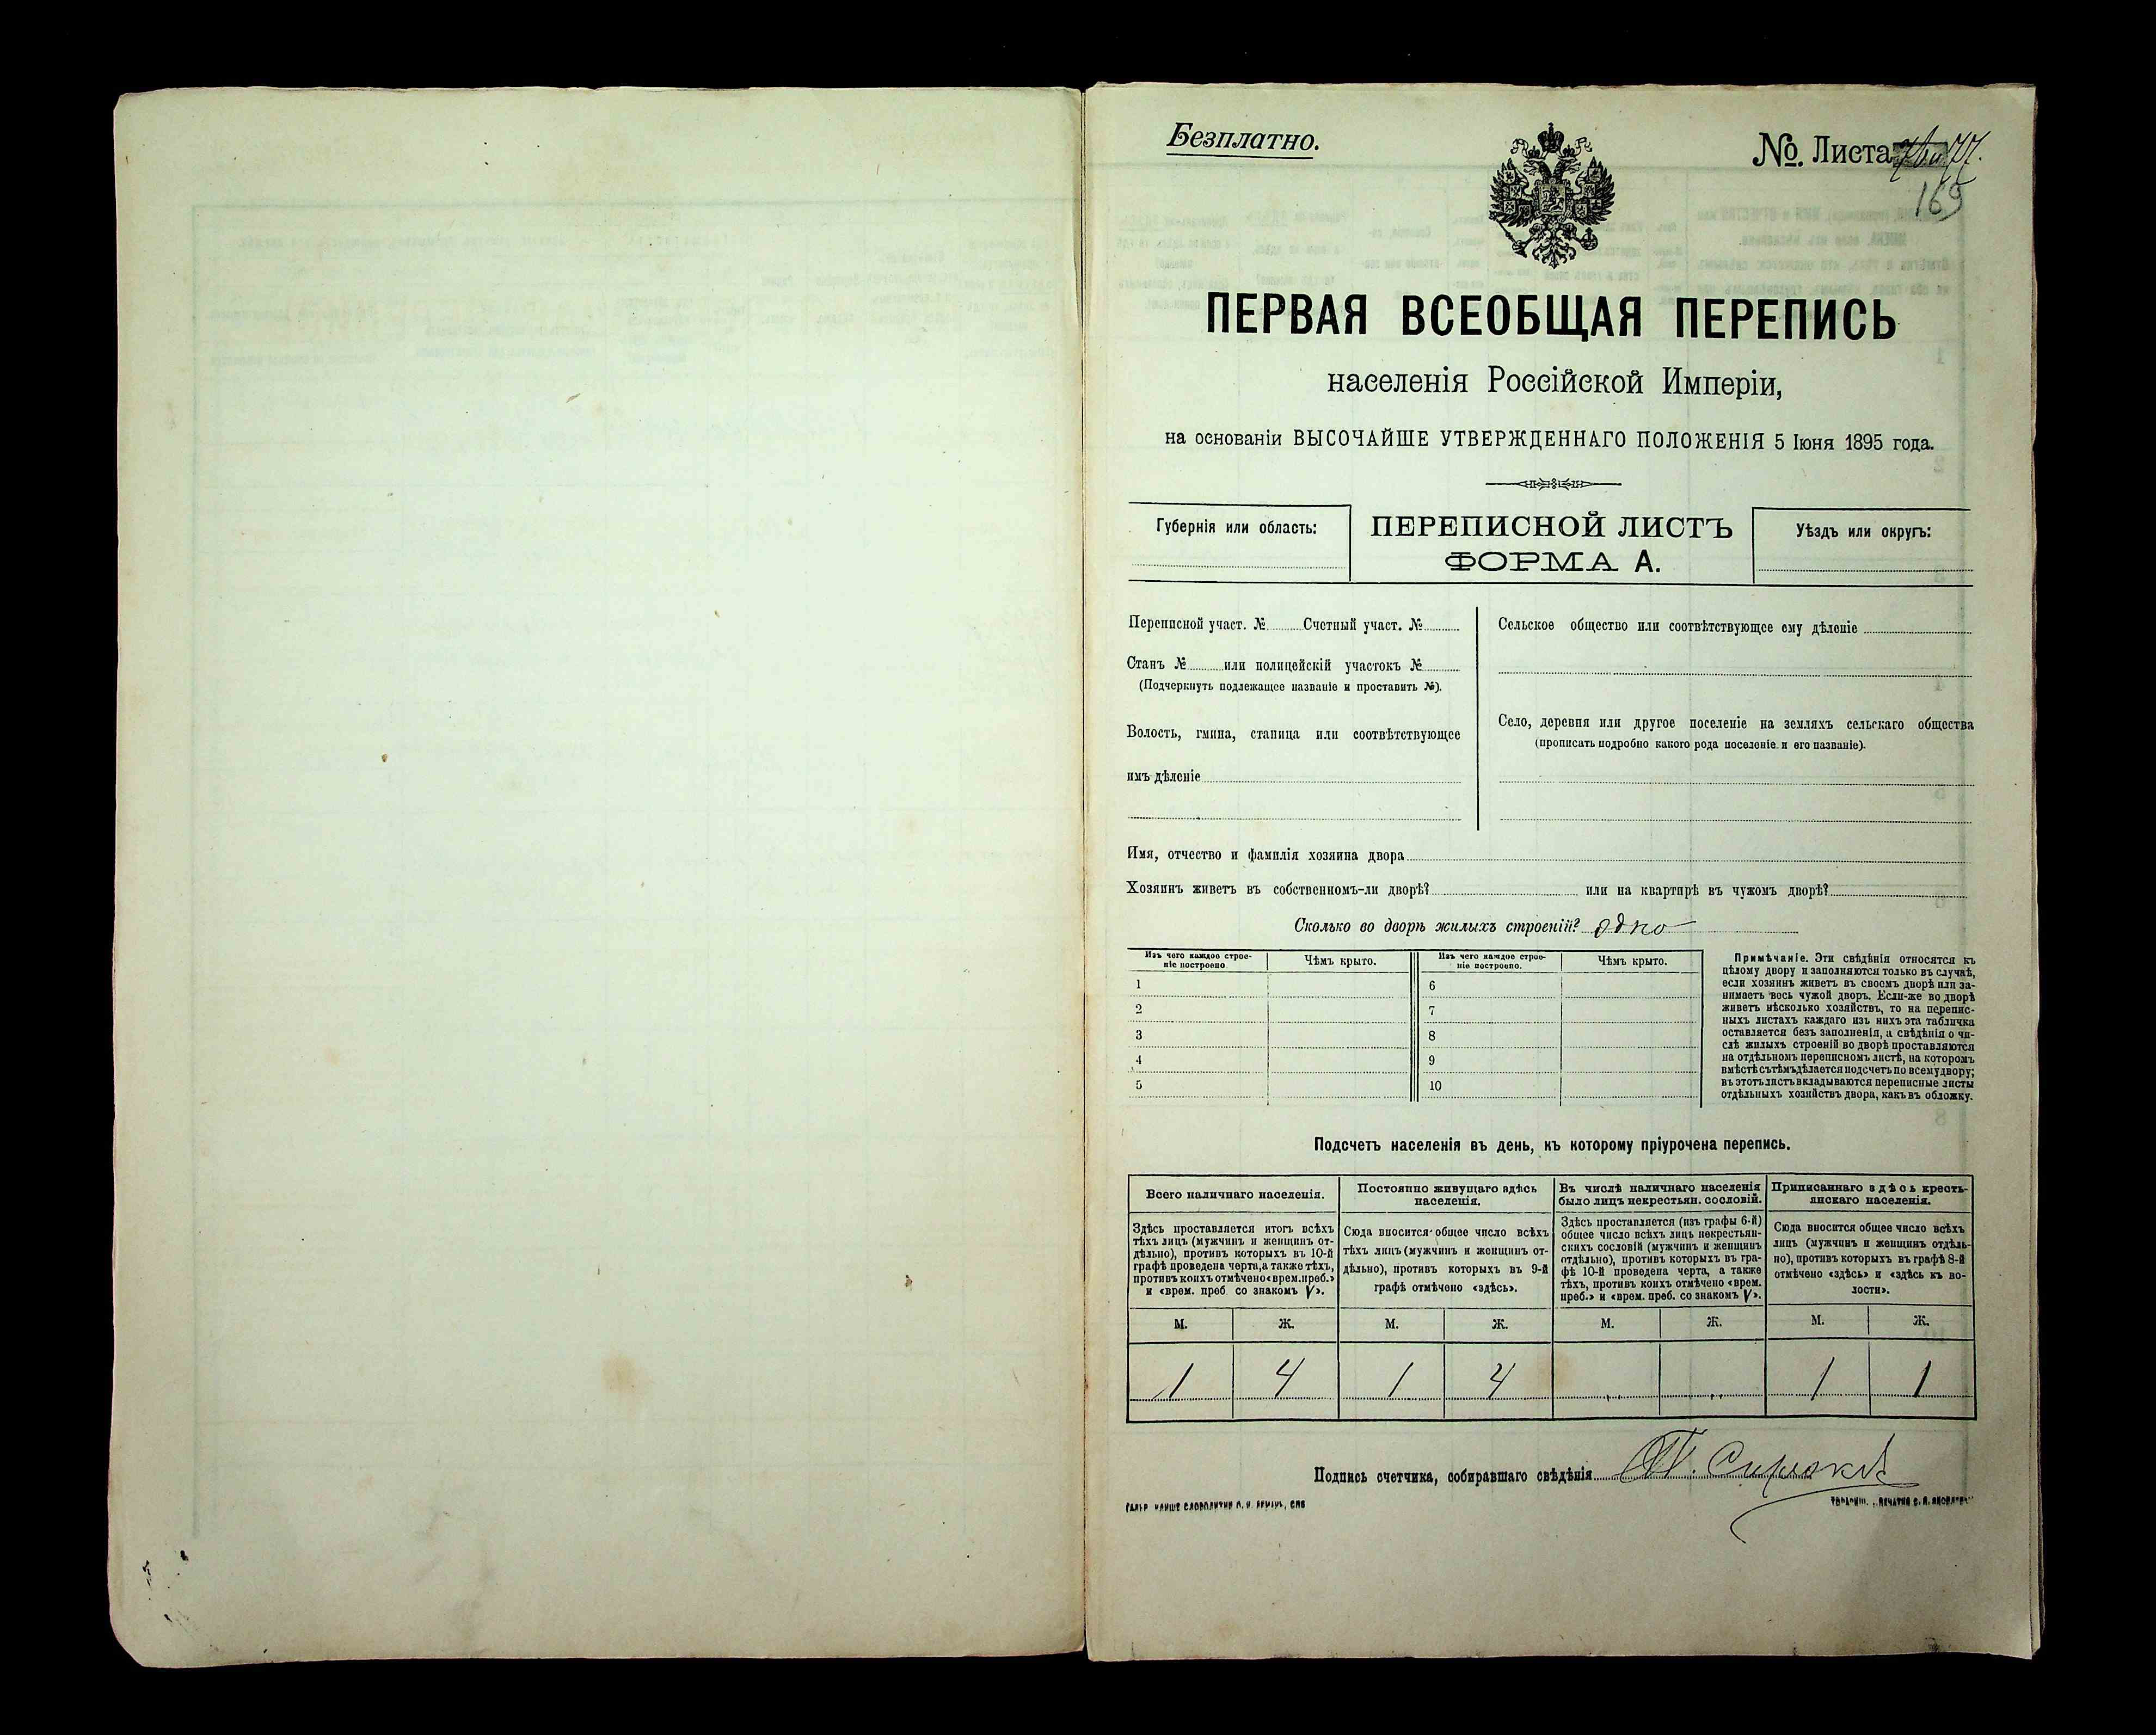 Безплатно.
№. Листа
169
ПЕРВАЯ ВСЕОБЩАЯ ПЕРЕПИСЬ
населенія Россійской Имперіи,
на основаніи ВЫСОЧАЙШЕ УТВЕРЖДЕННАГО ПОЛОЖЕНІЯ 5 Іюня 1895 года.
Губернія или область:
ПЕРЕПИСНОЙ ЛИСТЪ
ФОРМА А.
Уѣздъ или округъ:
Переписной участ. № Счетный участ. №
Станъ № или полицейскій участокъ №
(Подчеркнуть подлежащее названіе и проставить №).
Волость, гмина, станица или соотвѣтствующее
имъ дѣленіе
Сельское общество или соотвѣтствующее ему дѣленіе
Село, деревня или другое поселеніе на земляхъ сельскаго общества
(прописать подробно какого рода поселеніе и его названіе).
Имя, отчество и фамилія хозяина двора
Хозяинъ живетъ въ собственномъ-ли дворѣ? или на квартирѣ въ чужомъ дворѣ?
Сколько во дворѣ жилыхъ строеній? одно
Изъ чего каждое строе-
ніе построено.
Чѣмъ крыто.
Изъ чего каждое строе-
ніе построено.
Чѣмъ крыто.
1 6
2 7
3 8
4 9
5 10
Примѣчаніе. Эти свѣдѣнія относятся къ
цѣлому двору и заполняются только въ случаѣ,
если хозяинъ живетъ въ своемъ дворѣ или за-
нимаетъ весь чужой дворъ. Если-же во дворѣ
живетъ нѣсколько хозяйствъ, то на перепис-
ныхъ листахъ каждаго изъ нихъ эта табличка
оставляется безъ заполненія, а свѣдѣнія о чи-
слѣ жилыхъ строеній во дворѣ проставляются
на отдѣльномъ переписномъ листѣ, на которомъ
вмѣстѣ съ тѣмъ дѣлается подсчетъ по всему двору;
въ этотъ листъ вкладываются переписные листы
отдѣльныхъ хозяйствъ двора, какъ въ обложку.
Подсчетъ населенія въ день, къ которому пріурочена перепись.
Всего наличнаго населенія.
Здѣсь проставляется итогъ всѣхъ
тѣхъ лицъ (мужчинъ и женщинъ от-
дѣльно), противъ которыхъ въ 10-й
графѣ проведена черта, а также тѣхъ,
противъ коихъ отмѣчено «врем. преб.»
и «врем. преб. со знакомъ V».
Постоянно живущаго здѣсь
населенія.
Сюда вносится общее число всѣхъ
тѣхъ лицъ (мужчинъ и женщинъ от-
дѣльно), противъ которыхъ въ 9-й
графѣ отмѣчено «здѣсь».
Въ числѣ наличнаго населенія
было лицъ некрестьян. сословій.
Здѣсь проставляется (изъ графы 6-й)
общее число всѣхъ лицъ некрестьян-
скихъ сословій (мужчинъ и женщинъ
отдѣльно), противъ которыхъ въ гра-
фѣ 10-й проведена черта, а также
тѣхъ, противъ коихъ отмѣчено «врем.
преб.» и «врем. преб. со знакомъ V».
Приписаннаго здѣсь кресть-
янскаго населенія.
Сюда вносится общее число всѣхъ
лицъ (мужчинъ и женщинъ отдѣль-
но), противъ которыхъ въ графѣ 8-й
отмѣчено «здѣсь» и «здѣсь къ во-
лости».
М. Ж. М. Ж. М. Ж. М. Ж.
1 4 1 4 1 1
Подпись счетчика, собиравшаго свѣдѣнія